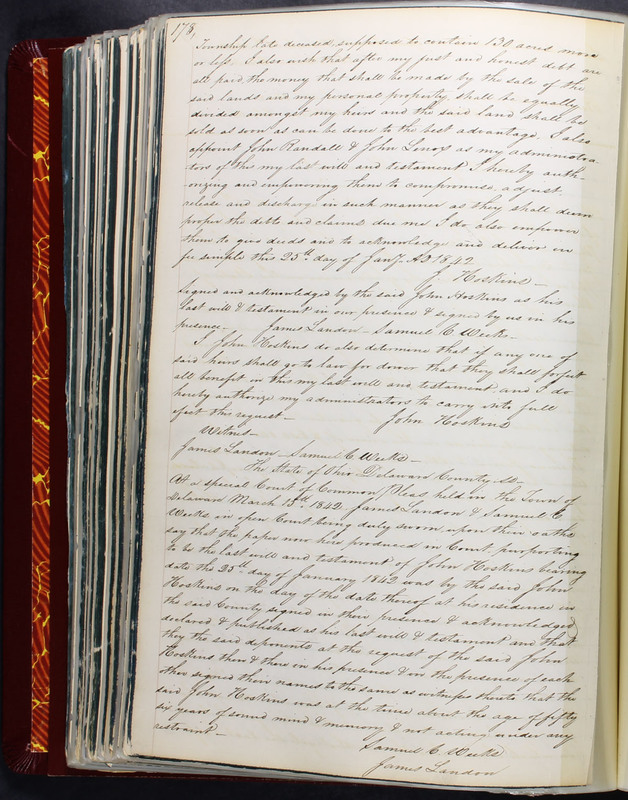 178,
Township late deceased, supposed to contain 130 acres more
or less. I also wish that after my just and honest debt are
all paid the money that shall be made by the sale of the
said lands and my personal property shall be equally
devided amongst my heirs and the said land shall be
sold as soon as can be done to the best advantage. I also
appoint John Randall & John Linox as my administra-
tors of this my last will and testament I hereby auth-
orizing and empowering them to compromise, adjust,
release and discharge in such manner as they shall deem
proper the debts and claims due me I do also empower
them to give deeds and to acknowledge and deliver in
fee simple this 25th day of Jany. AD 1842
J. Hoskins -
Signed and acknowledged by the said John Hoskins as his
last will & testament in our presence & signed by us in his
presence - James Landon - Samuel C Weeks -
I John Hoskins do also determine that if any one of
said heirs shall go to law for dower that they shall forfeit
all benefit in this my last will and testament, and I do
hereby authorize my administrators to carry into full
efect this request - John Hoskins
Witness -
James Landon - Samuel C. Weeks -
The State of Ohio Delaware County ss -
At a special Court of Common Pleas held in the Town of
Delaware March 15th 1842. James Landon & Samuel C
Weeks in open Court being duly sworn upon their oaths
say that the paper now here produced in Court purporting
to be the last will and testament of John Hoskins bearing
date the 25th day of January 1842 was by the said John
Hoskins on the day of the date thereof at his residence in
the said County signed in their presence & acknowledged
declared & published as his last will & testament and that
they the said deponents at the request of the said John
Hoskins then & there in his presence & in the presence of each
other signed their names to the same as witnesses thereto that the
said John Hoskins was at the time about the age of fifty
six years of sound mind & memory & not acting under any
restraint -
Samuel C Weeks
James Landon